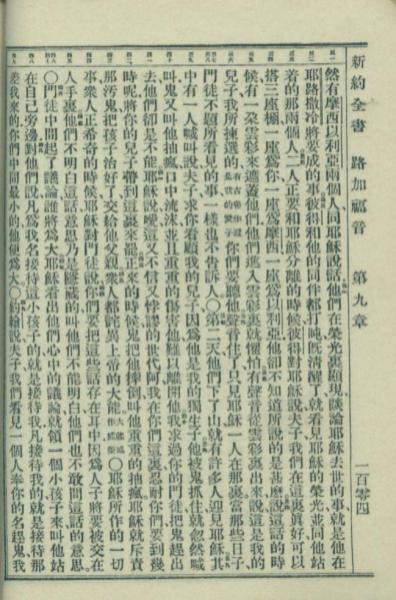 新約全書 路加福音 第九章 一百零四
然有摩西以利亞兩個人、同耶穌說話他們在榮光裏顯現談論耶穌去世的事就是他在
耶路撒冷將要成的事彼得和他的同伴都打盹旣清醒了就看見耶穌的榮光並同他站
着的那兩個人二人正要和耶穌分離的時候彼得對耶穌說夫子我們在這裏眞好可以
搭三座棚一座爲你一座爲摩西一座爲以利亞他却不知道所說的是甚麽說這話的時
候有一朵雲彩來遮蓋他們他們進入雲彩裏就懼怕有聲音從雲彩裏出來說這是我的
兒子我所揀選的你們要聽他聲音住了只見耶穌一人在那裏當那些日子
門徒不題所看見的事一樣也不告訴人〇第二天他們下了山就有許多人迎見耶穌其
中有一人喊叫說夫子求你看顧我的兒子因爲他是我的獨生子他被鬼抓住就忽然喊
叫鬼又叫他抽瘋口中流沫並且重重的傷害他難以離開他我求過你的門徒把鬼趕出
去他們却是不能耶穌說噯這又不信又悖謬的世代阿我在你們這裏忍耐你們要到幾
時呢將你的兒子帶到這裏來罷正來的時候鬼把他摔倒叫他重重的抽瘋耶穌就斥責
那汚鬼把孩子治好了交給他父親衆人都詫異上帝的大能〇耶穌所作的一切
事衆人正希奇的時候耶穌對門徒說你們要把這些話存在耳中因爲人子將要被交在
人手裏他們不明白這話意思乃是隱藏的叫他們不能明白他們也不敢問這話的意思。
〇門徒中間起了議論誰將爲大耶穌看出他們心中的議論就領一個小孩子來叫他站
在自己旁邊對他們說凡爲我名接待這小孩子的就是接待我凡接待我的就是接待那
差我來的你們中間最小的他便爲大〇約翰說夫子我們看見一個人奉你的名趕鬼我